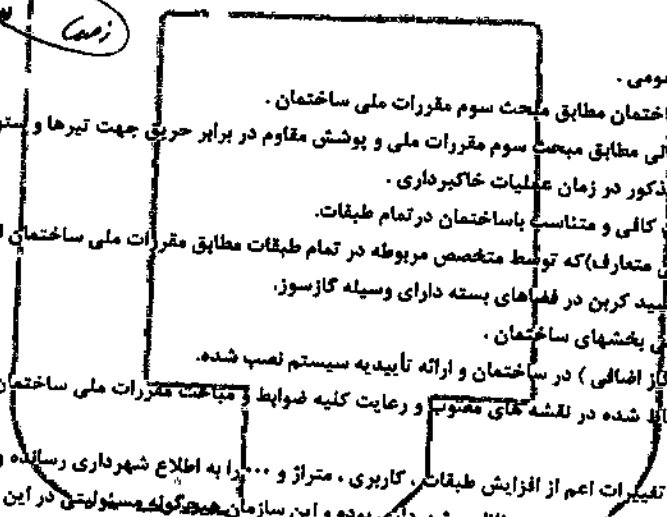 ومی .
اختمان مطابق مبحث سوم مقررات ملی ساختمان .
لی مطابق مبحث سوم مقررات ملی و پوشش مقاوم در برابر حریق جهت تیرها و ستو
ذکور در زمان عملیات خاکبرداری .
کافی و متناسب باساختمان درتمام طبقات.
متعارف)که توسط متخصص مربوطه در تمام طبقات مطابق مقررات ملی ساختمان ا
ید کربن در فضاهای بسته دارای وسیله گازسوز.
بخشهای ساختمان .
از اضافی ) در ساختمان و ارائه تأییدیه سیستم نصب شده.
اظ شده در نقشه های مصوب و رعایت کلیه ضوابط و مباحث مقررات ملی ساختمان
تغییرات اعم از افزایش طبقات ، کاربری ، متراژ و ... را به اطلاع شهرداری رسانده و
بوده و این سازمان هیچگونه مسئولیتی در این